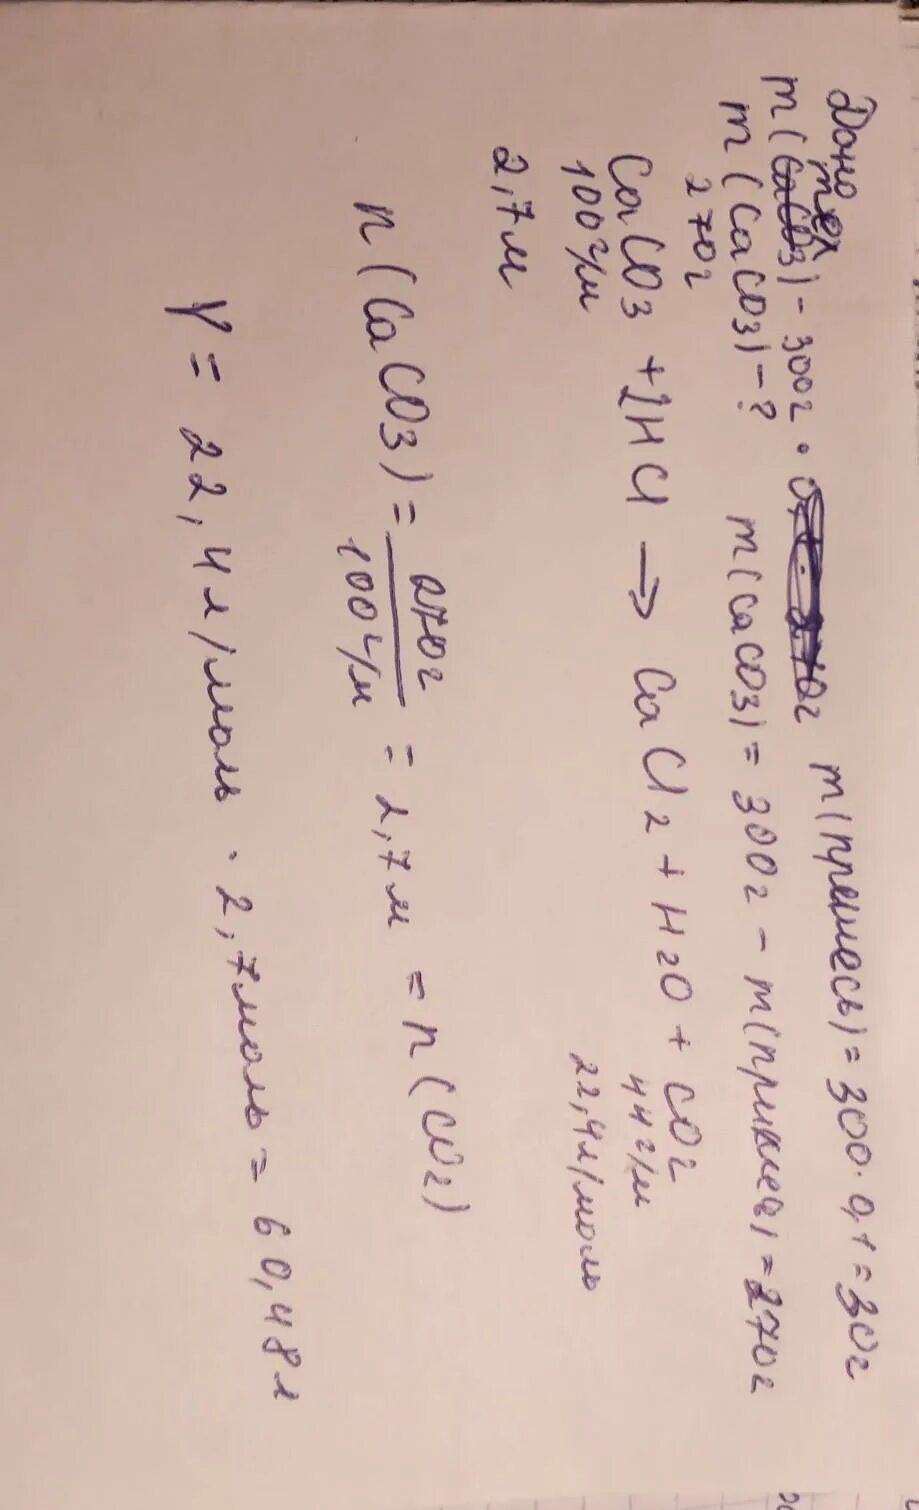 Дано
m(мел) - 300г · г m(примесь) = 300 · 0,1 = 30г
m(CaCO3) - ? m(CaCO3) = 300г - m(примесь) = 270г
270г
CaCO3 + 2HCl → CaCl2 + H2O + CO2
100г/м 44г/м
22,4л/моль
2,7м
n(CaCO3) = 270г / 100г/м = 2,7м = n(CO2)
V = 22,4л/моль · 2,7моль = 60,48л